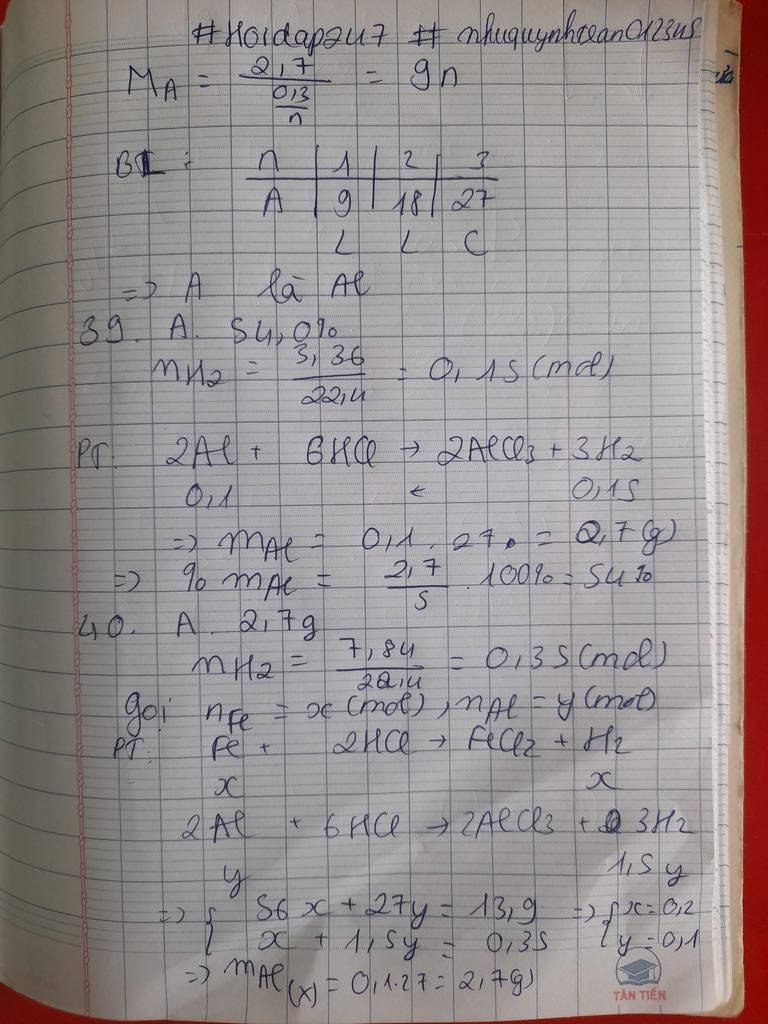 #Hoidap247 # nhuquynhclean012345
M_A = 2,7 / (0,3/n) = 9n
BL: n | 1 | 2 | 3
A | 9 | 18 | 27
L L C
=> A là Al
39. A. 54,0%
nH2 = 3,36/22,4 = 0,15 (mol)
PT: 2Al + 6HCl → 2AlCl3 + 3H2
0,1 ← 0,15
=> mAl = 0,1 . 27 = 2,7 (g)
=> % mAl = 2,7/5 . 100% = 54%
40. A. 2,7g
nH2 = 7,84/22,4 = 0,35 (mol)
gọi nFe = x (mol), nAl = y (mol)
PT: Fe + 2HCl → FeCl2 + H2
x x
2Al + 6HCl → 2AlCl3 + 3H2
y 1,5y
=> { 56x + 27y = 13,9 => { x = 0,2
x + 1,5y = 0,35 y = 0,1
=> mAl(x) = 0,1.27 = 2,7g)
TÂN TIẾN